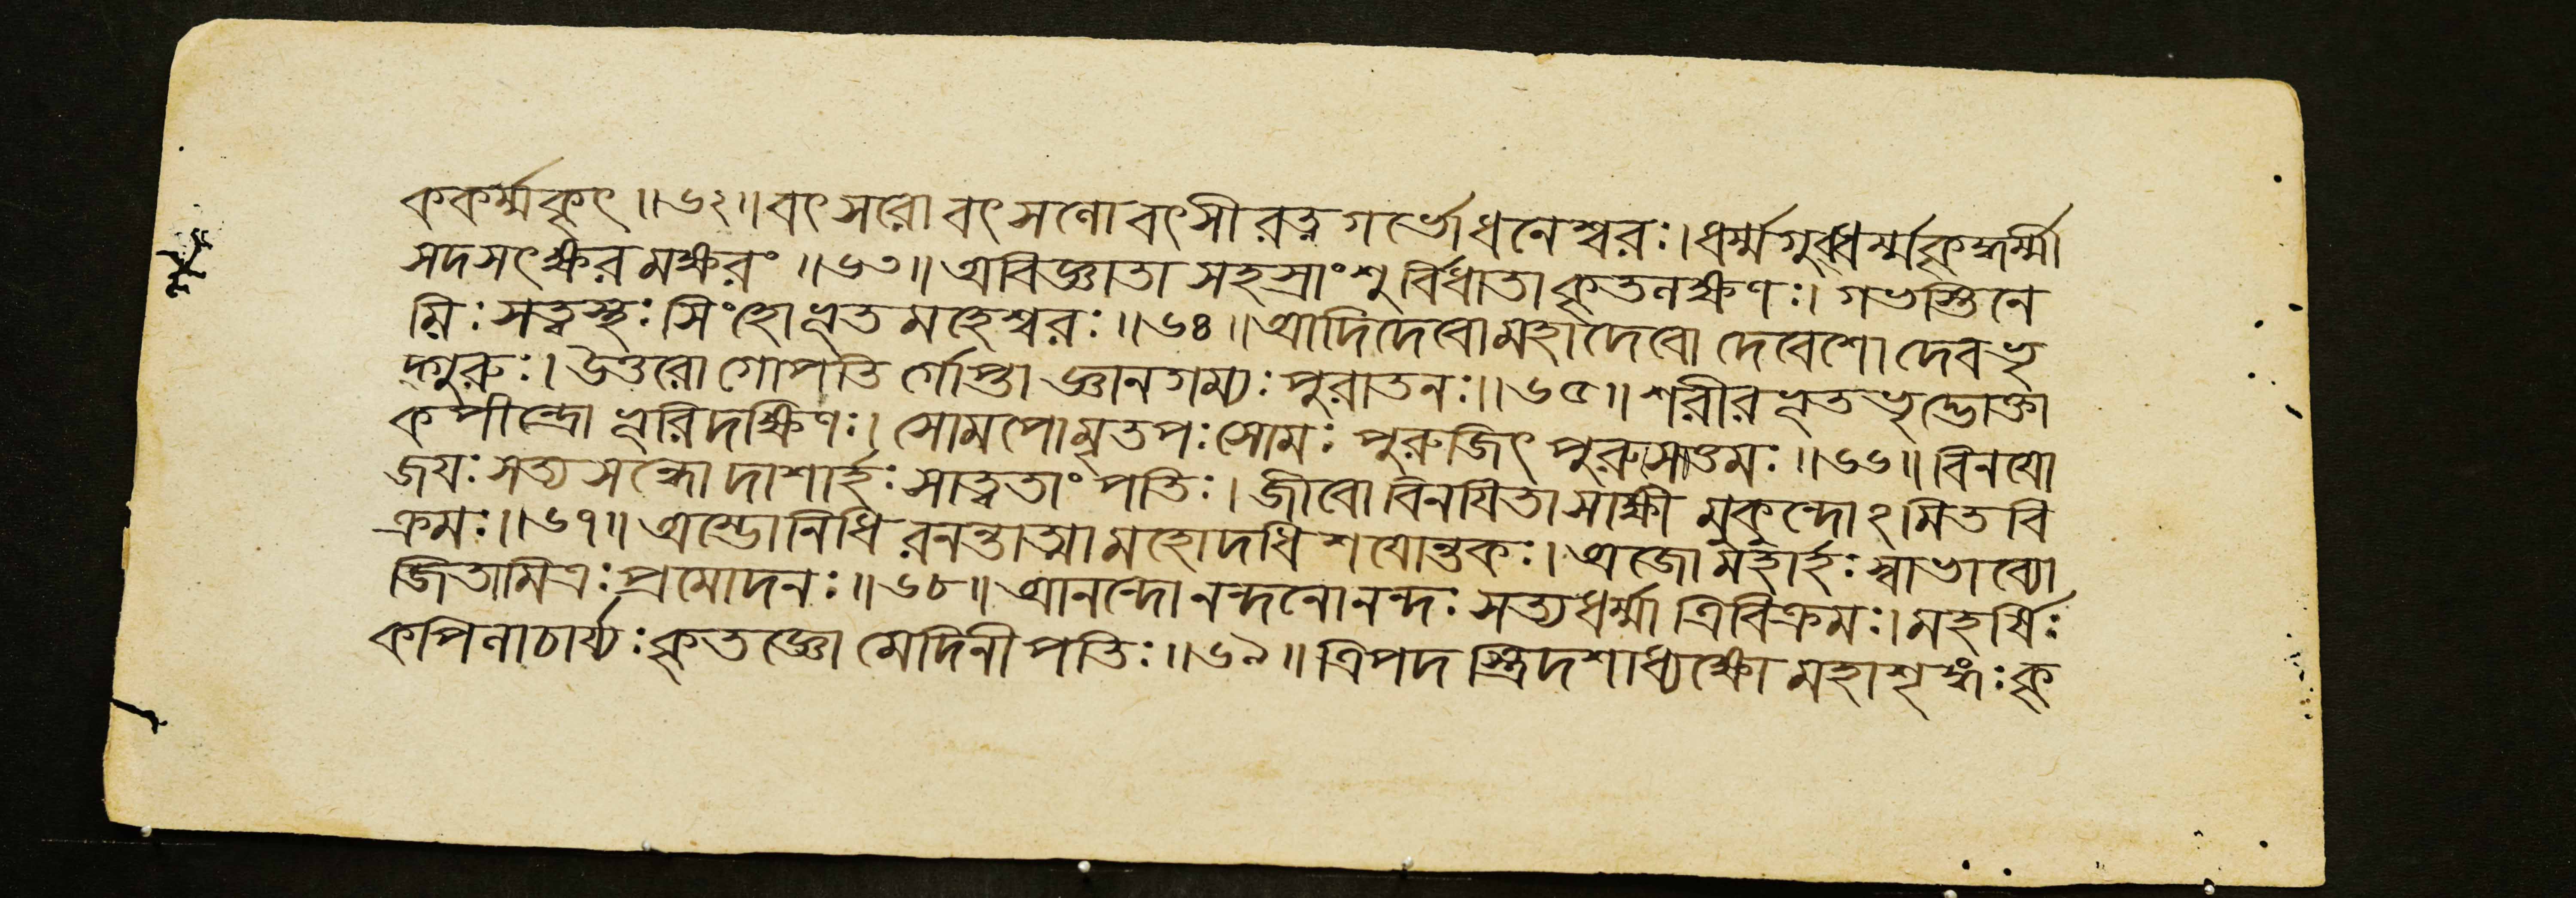 ককর্ম্মকৃৎ ॥৬২॥ বৎসরো বৎসলো বৎসী রত্নগর্ভো ধনেশ্বরঃ। ধর্ম্মগুব্ধর্ম্মকৃদ্ধর্ম্মী
সদসৎক্ষর মক্ষরং ॥৬৩॥ অবিজ্ঞাতা সহস্রাংশু র্বিধাতা কৃতলক্ষণঃ। গভস্তিনে
মিঃ সত্ত্বস্থঃ সিংহো ভূত মহেশ্বরঃ ॥৬৪॥ আদিদেবো মহাদেবো দেবেশো দেবভৃ
দ্গুরুঃ। উত্তরো গোপতি র্গোপ্তা জ্ঞানগম্যঃ পুরাতনঃ ॥৬৫॥ শরীর ভূতভৃদ্ভোক্তা
কপীন্দ্রো ভূরিদক্ষিণঃ। সোমপোমৃতপঃ সোমঃ পুরুজিৎ পুরুসত্তমঃ ॥৬৬॥ বিনয়ো
জয়ঃ সত্যসন্ধো দাশার্হঃ সাত্বতাং পতিঃ। জীবো বিনয়িতা সাক্ষী মুকুন্দোঽমিত বি
ক্রমঃ ॥৬৭॥ অম্ভোনিধি রনন্তাত্মা মহোদধি শয়োন্তকঃ। অজো মহার্হঃ স্বাভাব্যো
জিতামিত্রঃ প্রমোদনঃ ॥৬৮॥ আনন্দো নন্দনো নন্দঃ সত্যধর্ম্মা ত্রিবিক্রমঃ। মহর্ষিঃ
কপিলাচার্য্যঃ কৃতজ্ঞো মেদিনীপতিঃ ॥৬৯॥ ত্রিপদ স্ত্রিদশাধ্যক্ষো মহাশৃঙ্গঃ কৃ